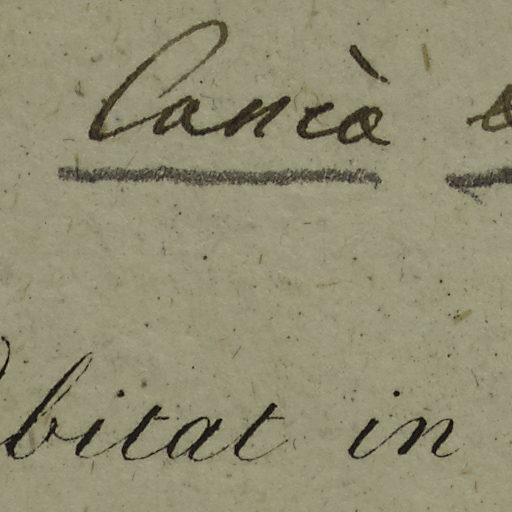 Cancà
bitat in